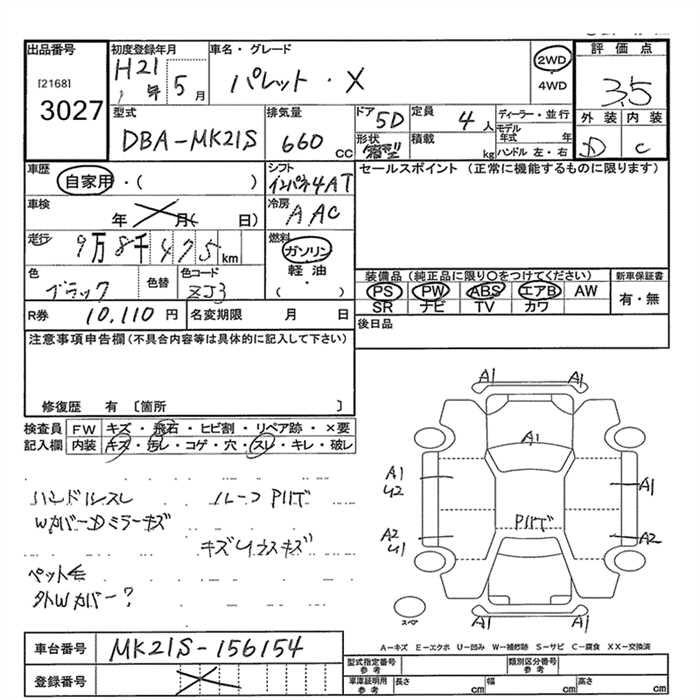 出品番号
[2168]
3027
初度登録年月
H21年 5月
車名・グレード
パレット・X
2WD
・
4WD
評価点
3.5
型式
DBA-MK21S
排気量
660 CC
ドア 5D
形状 箱型
定員 4人
積載 kg
ディーラー・並行
モデル年式 年
ハンドル 左・右
外装 内装
D C
車歴
自家用・( )
シフト
インパネ4AT
セールスポイント (正常に機能するものに限ります)
車検
年 月( 日)
冷房
AAC
走行
9万8千475km
燃料
ガソリン
・
軽油
( )
色
ブラック
色替
色コード
ZJ3
装備品 (純正品に限り〇をつけてください)
PS PW ABS エアB AW
SR ナビ TV カワ
新車保証書
有・無
R券 10,110円
名変期限 月 日
後日品
注意事項申告欄(不具合内容等は具体的に記入して下さい)
修復歴 有 〔箇所 〕
検査員 FW キズ・飛石・ヒビ割・リペア跡・×要
記入欄 内装 キズ・汚レ・コゲ・穴・スレ・キレ・破レ
ハンドルスレ
ルーフPハゲ
WカバーDミラーキズ
キズUウスキズ
ペット毛
外Wカバー?
A1 A1
A1
A1
U2
A1
Pハゲ
A2
U1
A2
A1 A1
スペア
A-キズ E-エクボ U-凹み W-補修跡 S-サビ C-腐食 XX-交換済
車台番号 MK21S-156154
登録番号
型式指定番号 参考
類別区分番号 参考
車庫証明用 参考
長さ cm
幅 cm
高さ cm